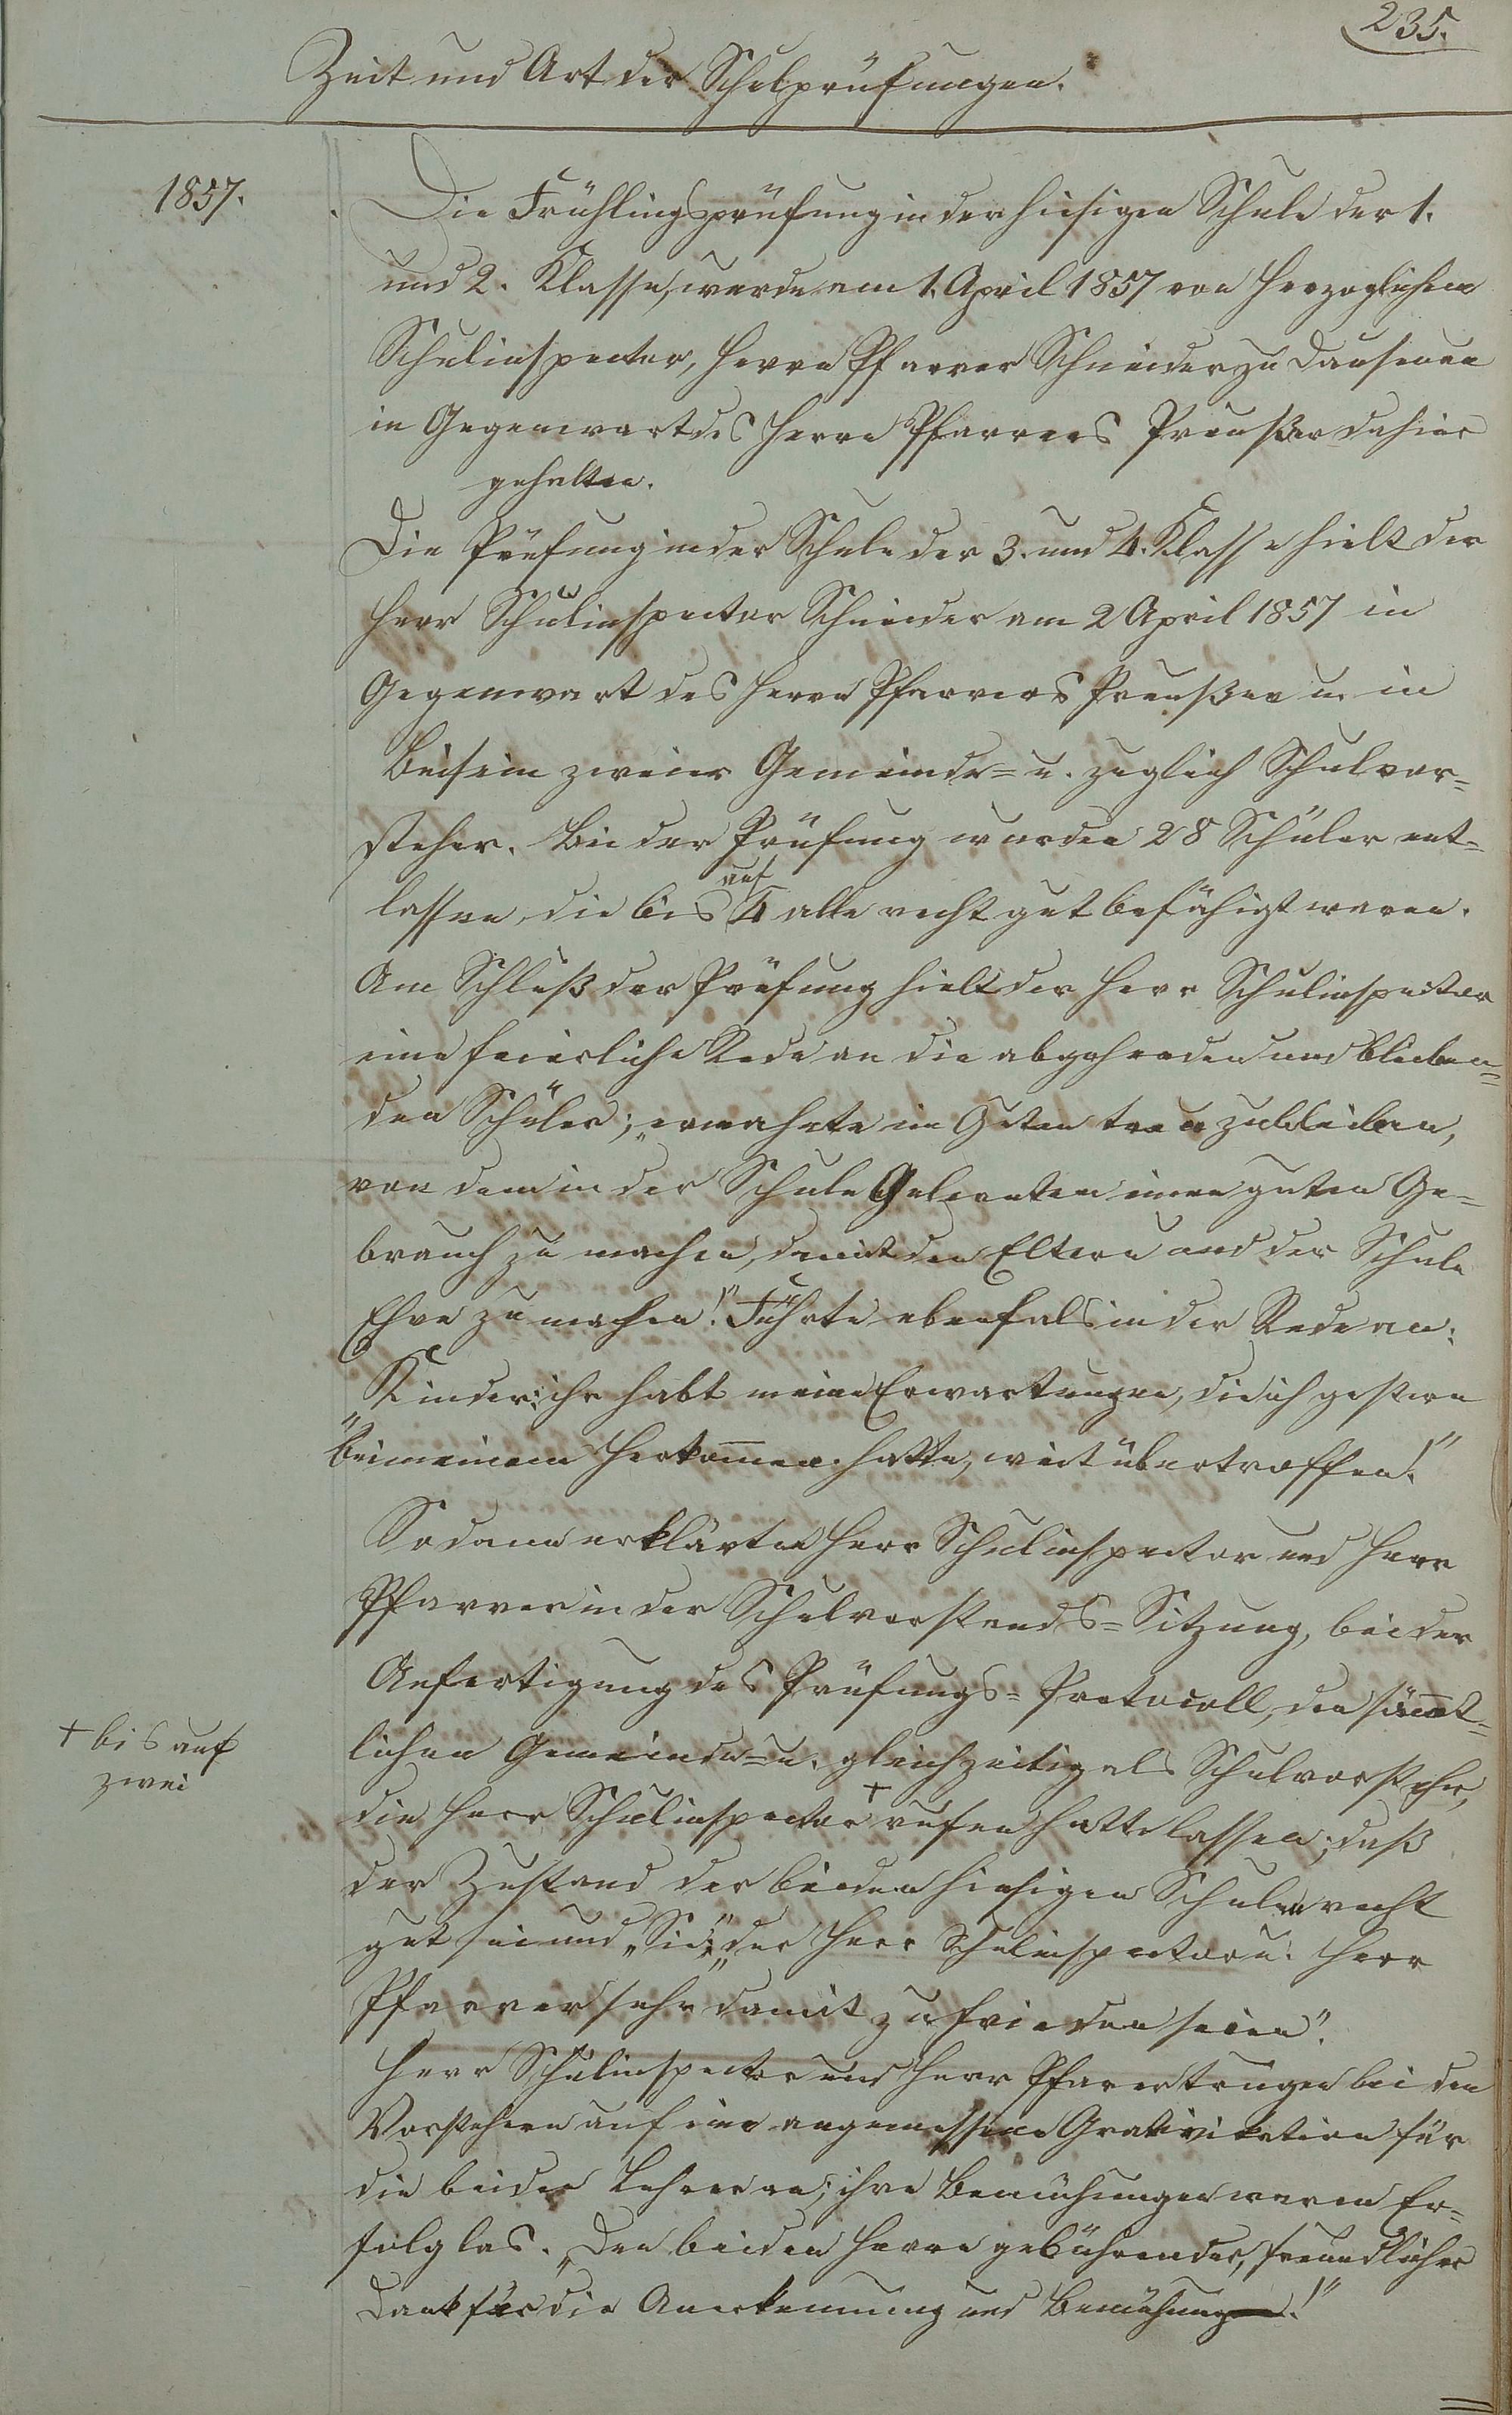 235.
Zeit und Art der Schulprüfungen.
1857.
Die Frühlingsprüfung in der hiesigen Schule der 1.
und 2. Klasse, wurde am 1. April 1857 von Herzoglichem
Schulinspector, Herrn Pfarrer Schneider zu Dausenau
in Gegenwart des Herrn Pfarrers Preußer dahier
gehalten.
Die Prüfung in der Schule der 3. und 4. Klasse hielt der
Herr Schulinspector Schneider am 2 April 1857 in
Gegenwart des Herrn Pfarrers Preußer u. in
Beisein zweier Gemeinde= u. zuglich Schulvor=
steher. Bei der Prüfung wurden 28 Schüler ent=
lassen, die bis auf 4 alle recht gut befähigt waren.
Am Schluß der Prüfung hielt der Herr Schulinspector
eine feierliche Rede an die abgehenden und bleiben=
den Schüler; „ermahnte im Guten treu zu bleiben,
von dem in der Schule Gelernten einen guten Ge=
brauch zu machen, damit den Eltern und der Schule
Ehre zu machen!" Führte ebenfals in der Rede an:
Kinder: ihr habt meine Erwartungen, die ich gestern
"bei meinem Herkom̅en hatte, weit übertroffen!"
Sodann erklärten Herr Schulinspector und Herr
Pfarrer in der Schulvorstands=Sitzung, bei der
Anfertigung des Prüfungs=Protocoll, den säm̅t=
lichen Gemeinde= u. gleichzeitig als Schulvorstehr,
die Herr Schulinspector + rufen hatte lassen; daß
+ bis auf
zwei
der Zustand der beiden hiesigen Schulen recht
gut sei und „Sie", der Herr Schulinspector u. Herr
Pfarrer sehr damit zufrieden seien".
Herr Schulinspector und Herr Pfarrer trugen bei den
Vorstehern auf eine angemessene Gratification für
die beiden Lehrer an; ihre Bemühungen waren Er=
folglos. „Den beiden Herrn gebührender, freundlicher
Dank für die Anerkennung und Bemühung!"